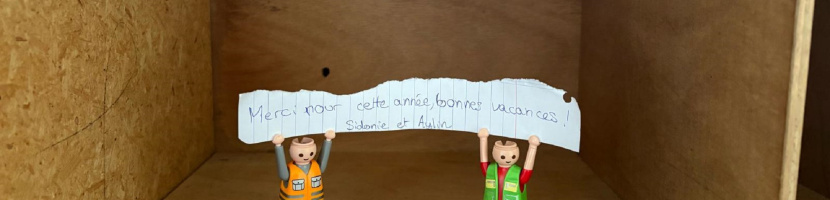 Merci pour cette année, bonnes vacances !
Sidonie et Aylin